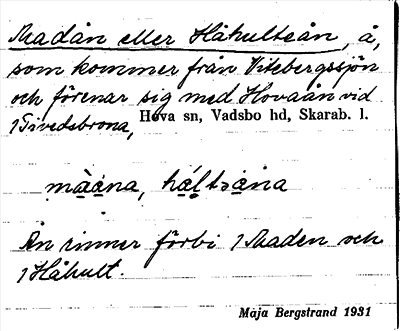 Madån eller Håhultsån, å,
som kommer från Vitebergssjön
och förenar sig med Hovaån vid
1 Tivedsbrona, Hova sn, Vadsbo hd, Skarab. l.
Ån rinner förbi 1 Maden och
1 Håhult.
Maja Bergstrand 1931